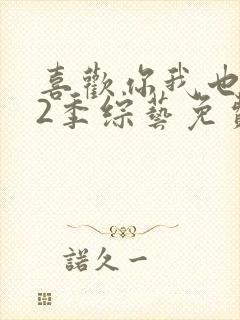 喜歡你我也
2季綜藝免費
諾久一